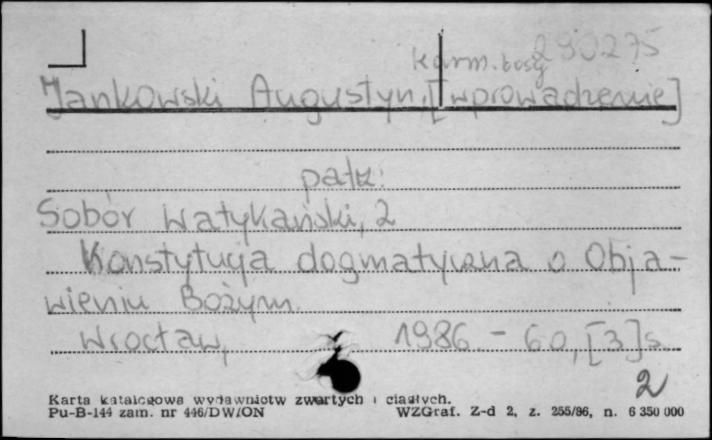 290275
karm. bosy
Jankowski Augustyn, [wprowadzenie]
patrz:
Sobór Watykański, 2
Konstytucja dogmatyczna o Obja-
wieniu Bożym.
Wrocław, 1986. - 60, [3] s.
2
Karta katalogowa wydawnictw zwartych i ciągłych.
Pu-B-144 zam. nr 446/DW/ON WZGraf. Z-d 2, z. 255/86, n. 6 350 000